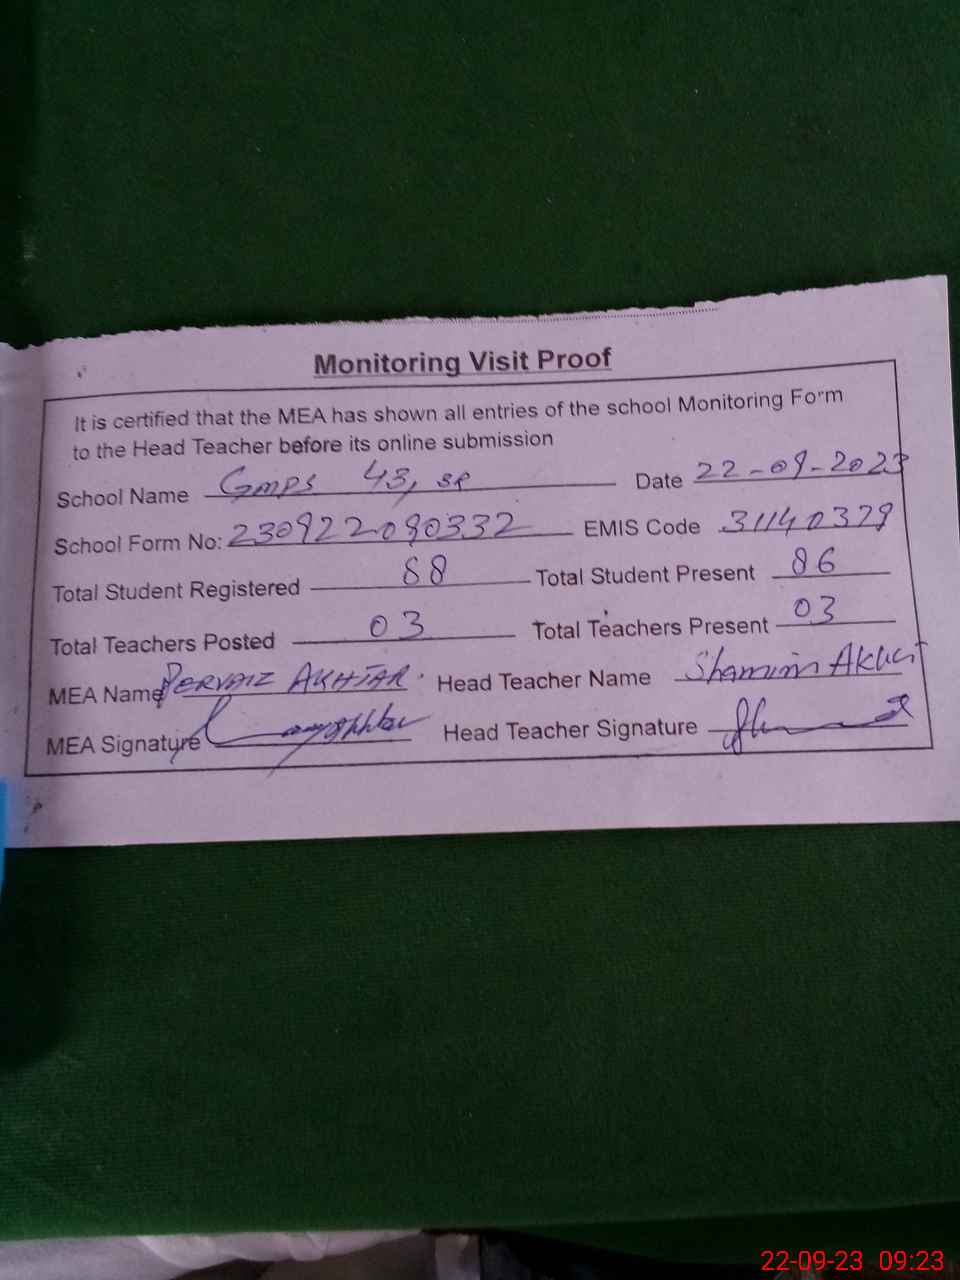 Monitoring Visit Proof
It is certified that the MEA has shown all entries of the school Monitoring Form
to the Head Teacher before its online submission
School Name GMPS 43, SP Date 22-09-2023
School Form No: 230922090332 EMIS Code 31140379
Total Student Registered 88 Total Student Present 86
Total Teachers Posted 03 Total Teachers Present 03
MEA Name PERVAIZ AKHTAR Head Teacher Name Shamim Akhtar
MEA Signature Head Teacher Signature
22-09-23 09:23